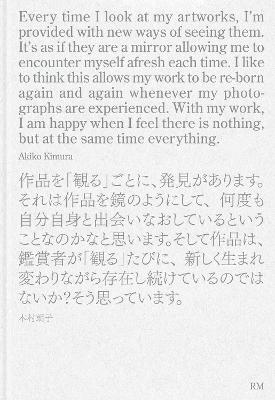 Every time I look at my artworks, I'm
provided with new ways of seeing them.
It's as if they are a mirror allowing me to
encounter myself afresh each time. I like
to think this allows my work to be re-born
again and again whenever my photo-
graphs are experienced. With my work,
I am happy when I feel there is nothing,
but at the same time everything.
Akiko Kimura
作品を「観る」ごとに、発見があります。
それは作品を鏡のようにして、何度も
自分自身と出会いなおしているという
ことなのかなと思います。そして作品は、
鑑賞者が「観る」たびに、新しく生まれ
変わりながら存在し続けているのでは
ないか?そう思っています。
木村 子
RM